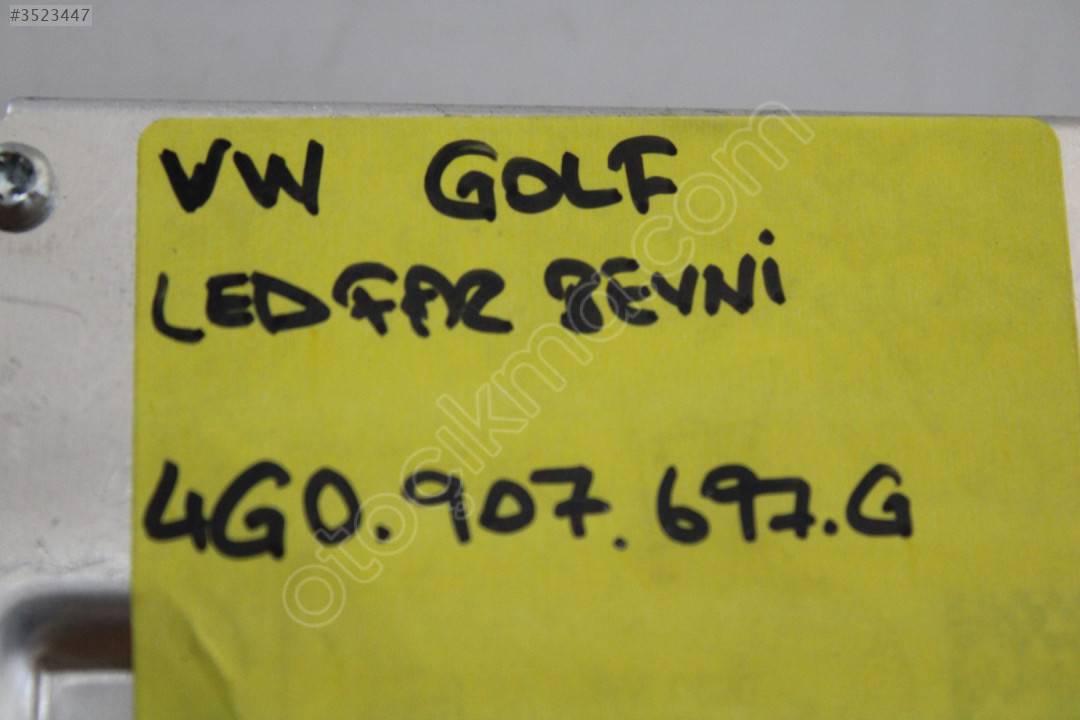 #3523447
VW GOLF
LED FAR BEYNİ
4G0.907.697.G
otocikmacom